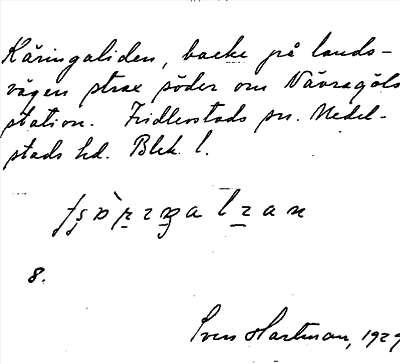 Käringaliden, backe på lands-
vägen strax söder om Nävragöls
station. Fridlevstads sn. Medel-
stads hd. Blek. l.
8.
Sven Hartman, 1929